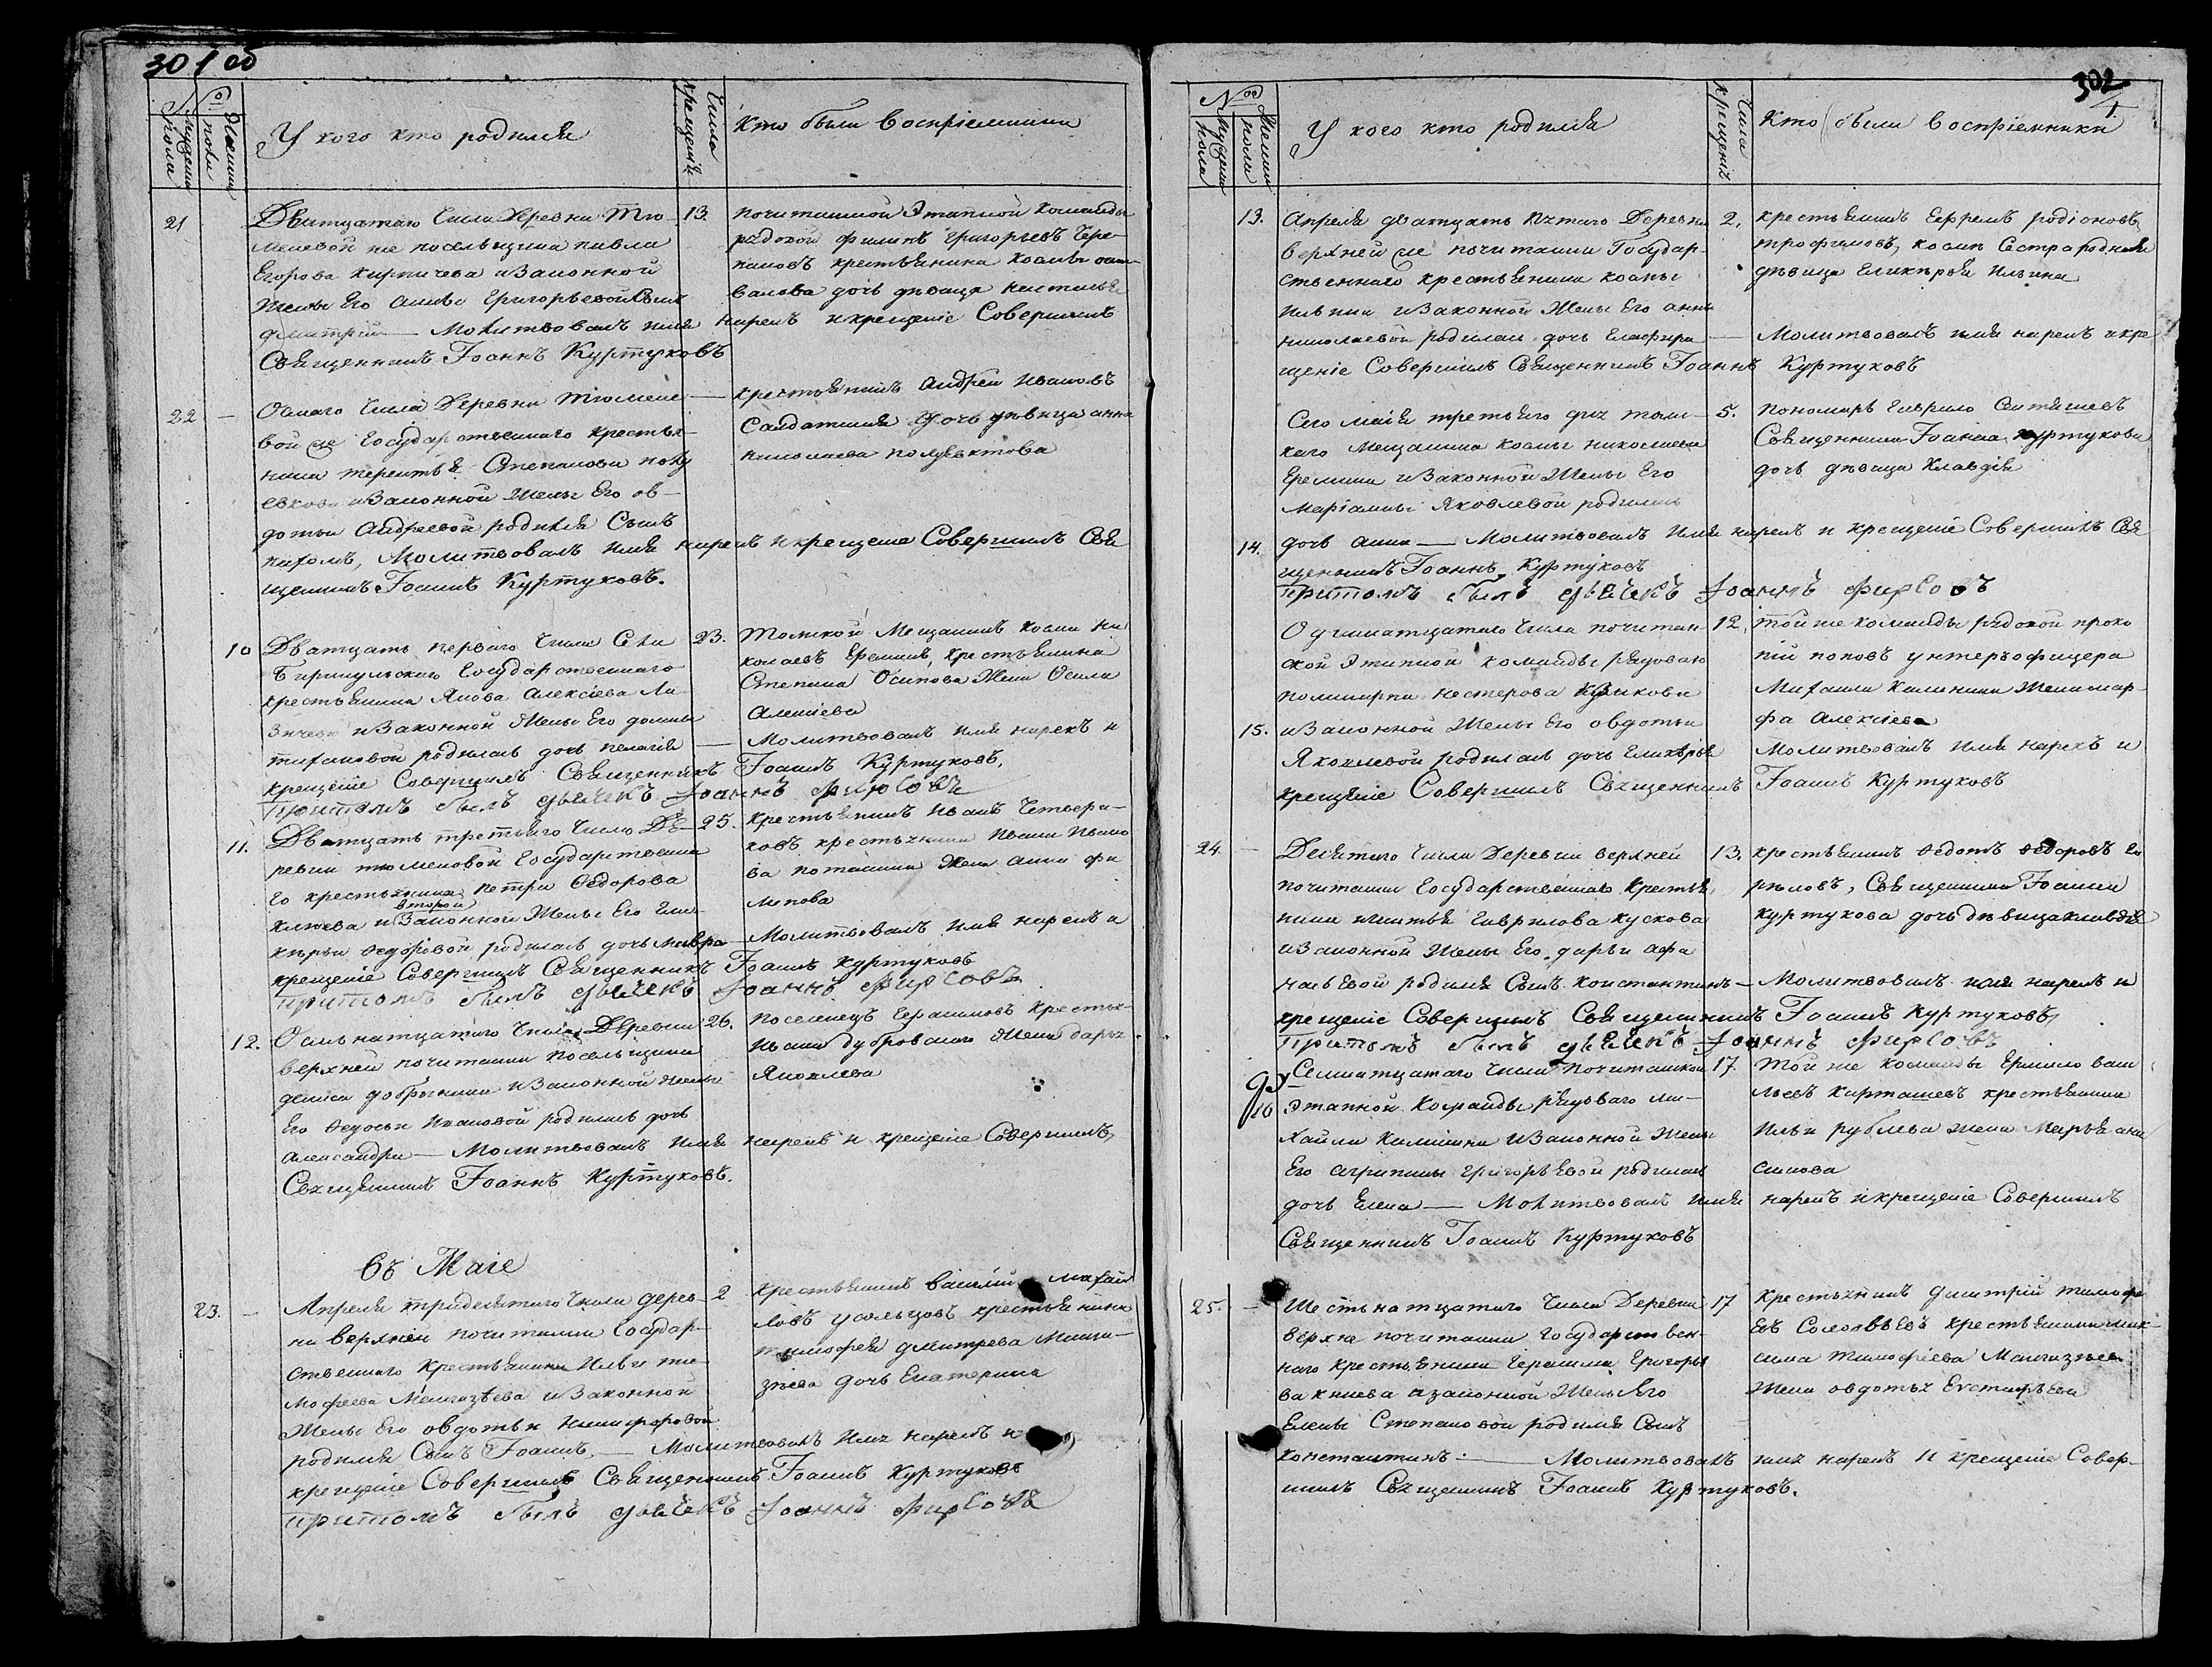 301 об
№
Мужеска пола
Женска пола
У кого кто родился
Числа крещенія
Кто были воспріемники
21
Дватцатаго числа Деревни Тю-
меневой поселыцика павла
Егорова кирпичева и Законной
Жены Его Григорьевой Сынъ
дмитрій — Молитвовалъ имя нарекъ и крещеніе Совершилъ
Священникъ Іоаннъ Куртуковъ
13.
почиташной Этапной команды
рядовой филипъ григорьевъ Чере-
пановъ крестьянина козмы
валова дочь девица настасья
22 —
Осмаго числа Деревни Тюмене-
вой Государственнаго крестья-
нина терентья Степанова
и Законной Жены Его ов-
дотьи Андреевой родился Сынъ
пахомъ, Молитвовалъ имя нарекъ и крещеніе Совершилъ Свя
щенникъ Іоаннъ Куртуковъ.
—
крестьянинъ Андрей Ивановъ
Салдатская дочь девица анна
николаева полуектова
10
Дватцать перваго числа Села
Бирикульскаго Государственнаго
крестьянина Якова Алексіева
и Законной Жены Его домны
родилась дочь пелагія —
крещеніе Совершилъ Священникъ Іоаннъ Куртуковъ,
притомъ былъ дьячекъ Іоаннъ Фирсовъ
23.
томской Мещанинъ козма ни
колаевъ Ереминъ, крестьянина
Степана Осипова Жена
Алексіева
Молитвовалъ имя нарекъ и
11.
Дватцать третьяго число Де-
ревни тюменовой Государственна
го крестьянина петра Федорова
второй
и Законной Жены Его Гли-
керьи родилась дочь мавра —
крещеніе Совершилъ Священникъ Іоаннъ Куртуковъ
притомъ былъ дьячекъ Іоаннъ Фирсовъ
25.
крестьянинъ иванъ Четвери-
ковъ крестьянина Ивана Ивано
ва Жена анна фи
липова
Молитвовалъ имя нарекъ и
12.
Осмьнатцатаго числа Деревни
верхней почитанки посельщика
дениса добрынина и Законной жены
Его Федосьи Ивановой родилась дочь
Александра — Молитвовалъ имя нарекъ и крещеніе Совершилъ
Священникъ Іоаннъ Куртуковъ.
26.
поселенецъ Герасимовъ крестья-
Ивана дубровскаго Жена дарья
Яковлева
Въ Маіе
23. —
Апреля тридесятаго числа дерев-
ни верхней почитанки Государ-
ственнаго крестьянина Ильи ти-
мофеева Мангазѣева и Законной
Жены Его овдотьи никифоровой
родился Сынъ Іоаннъ, — Молитвовалъ имя нарекъ и
крещеніе Совершилъ Священникъ Іоаннъ Куртуковъ
притомъ былъ дьячекъ Іоаннъ Фирсовъ
2
крестьянинъ василій михай
ловъ усольцовъ крестьянина
тимофея дмитрева Манга-
зѣева дочь Екатерина
302
№
Мужеска пола
Женска пола
У кого кто родился
Числа крещенія
Кто были воспріемники
13.
Апреля дватцать пятаго Деревни
верхней почитанки Государ-
ственнаго крестьянина козмы
Ильина и Законной Жены Его анны
николаевой родилась дочь Глафира — Молитвовалъ имя нарекъ и кре
щеніе Совершилъ Священникъ Іоаннъ Куртуковъ
2.
крестьянинъ Ефремъ родіоновъ
трофимовъ, козмы Сестра родная
дѣвица Гликерья Ильина
14.
Сего маія третьяго дня томс-
каго Мещанина козмы николаева
Еремина и Законной Жены Его
Маріамны Яковлевой родилась
дочь анна — Молитвовалъ имя нарекъ и крещеніе Совершилъ Свя
щенникъ Іоаннъ Куртуковъ
притомъ былъ дьячекъ Іоаннъ Фирсовъ
5.
пономарь гаврило
Священника Іоанна куртукова
дочь дѣвица Клавдія
15.
Одиннатцатаго числа почиташ-
ской Этапной команды рядоваго
поликарпа нестерова
и Законной Жены Его овдотьи
Яковлевой родилась дочь Гликерія
крещеніе Совершилъ Священникъ Іоаннъ Куртуковъ
12.
той же команды рядовой проко
пій поповъ унтеръофицера
Михаила Калинина Жена мар-
фа Алексіева
Молитвовалъ имя нарекъ и
24 —
Десятаго числа Деревни верхней
почитанки Государственнаго крестья
нина игнатья гаврилова кускова
и Законной Жены Его дарьи афа
насьевой родился Сынъ Константинъ — Молитвовалъ имя нарекъ и
крещеніе Совершилъ Священникъ Іоаннъ Куртуковъ,
притомъ былъ дьячекъ Іоаннъ Фирсовъ
13.
крестьянинъ Федотъ Федоровъ
Священника Іоанна
Куртукова дочь девица клавдія
16
Семнатцатаго числа почиташской
Этапной Команды рядоваго ми-
хаила Калинина и Законной Жены
Его агрипины григорьевой родилась
дочь Елена — Молитвовалъ имя нарекъ и крещеніе Совершилъ
Священникъ Іоаннъ Куртуковъ
17.
той же команды Ермило васи
льевъ Карташевъ крестьянина
Ильи рублева жена Марья
симова
25. —
Шестьнатцатаго числа Деревни
верхне почитанки государствен-
наго крестьянина Герасима Григорье
ва князева и законной Жены Его
Елены Степановой родился Сынъ
константинъ. — Молитвовалъ имя нарекъ и крещеніе Совер-
шилъ Священникъ Іоаннъ Куртуковъ.
17
крестьянинъ дмитрій тимофе
евъ Соловьевъ крестьянина мак-
сима тимофеева Мангазѣева
Жена овдотья Евстафьева